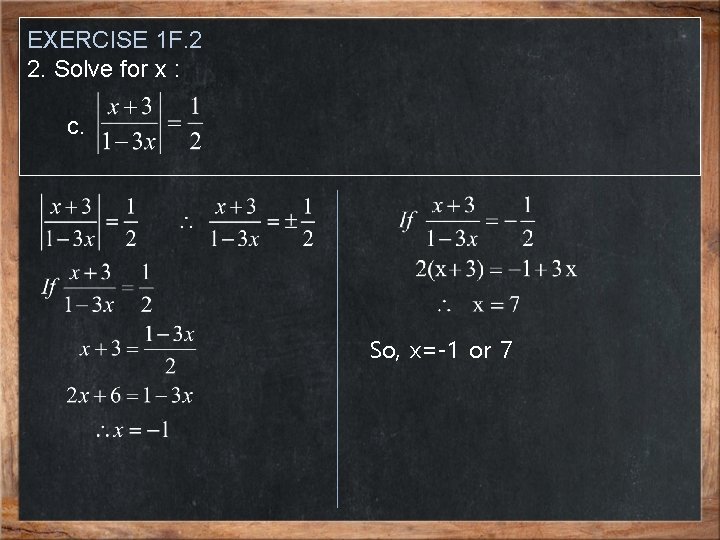 EXERCISE 1F.2
2. Solve for x :
c. |(x+3)/(1−3x)| = 1/2
|(x+3)/(1−3x)| = 1/2 ∴ (x+3)/(1−3x) = ± 1/2
If (x+3)/(1−3x) = 1/2
x+3 = (1−3x)/2
2x+6 = 1−3x
∴ x = −1
If (x+3)/(1−3x) = − 1/2
2(x+3) = −1+3x
∴ x = 7
So, x=-1 or 7